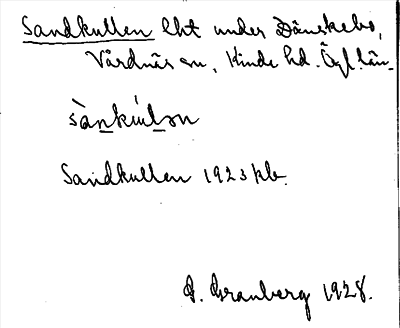 Sandkullen lht under Dänskebo,
Vårdnäs sn, Kinda hd. Ögl. län.
sànkúlən
Sandkullen 1923 kb.
G. Granberg 1928.